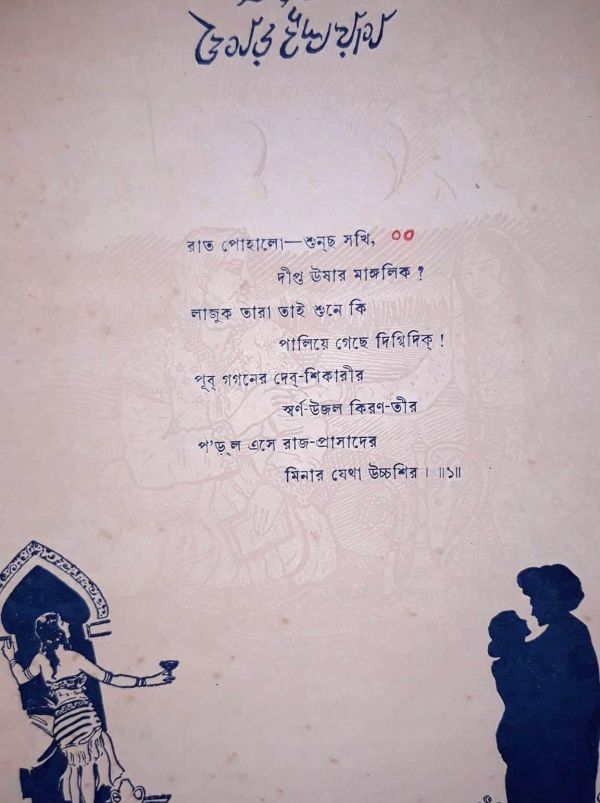 রাত পোহালো—শুন্‌ছ সখি,
দীপ্ত ঊষার মাঙ্গলিক ?
লাজুক তারা তাই শুনে কি
পালিয়ে গেছে দিগ্বিদিক্ !
পূব্ গগনের দেব্-শিকারীর
স্বর্ণ-উজল কিরণ-তীর
প'ড়্‌ল এসে রাজ-প্রাসাদের
মিনার যেথা উচ্চশির। ॥১॥